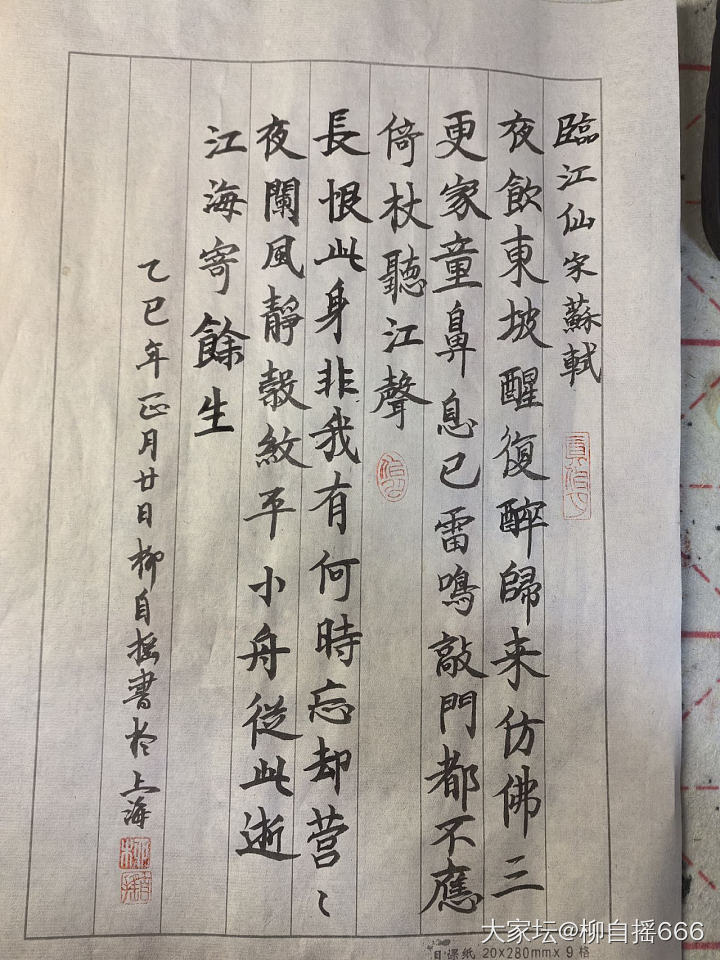 臨江仙 宋 蘇軾
夜飲東坡醒復醉歸来仿佛三
更家童鼻息已雷鳴敲門都不應
倚杖聽江聲
長恨此身非我有何時忘却营〻
夜闌風靜縠紋平小舟從此逝
江海寄餘生
乙巳年正月廿日柳自摇書於上海
日课纸 20×280mm×9格
大家坛@柳自摇666